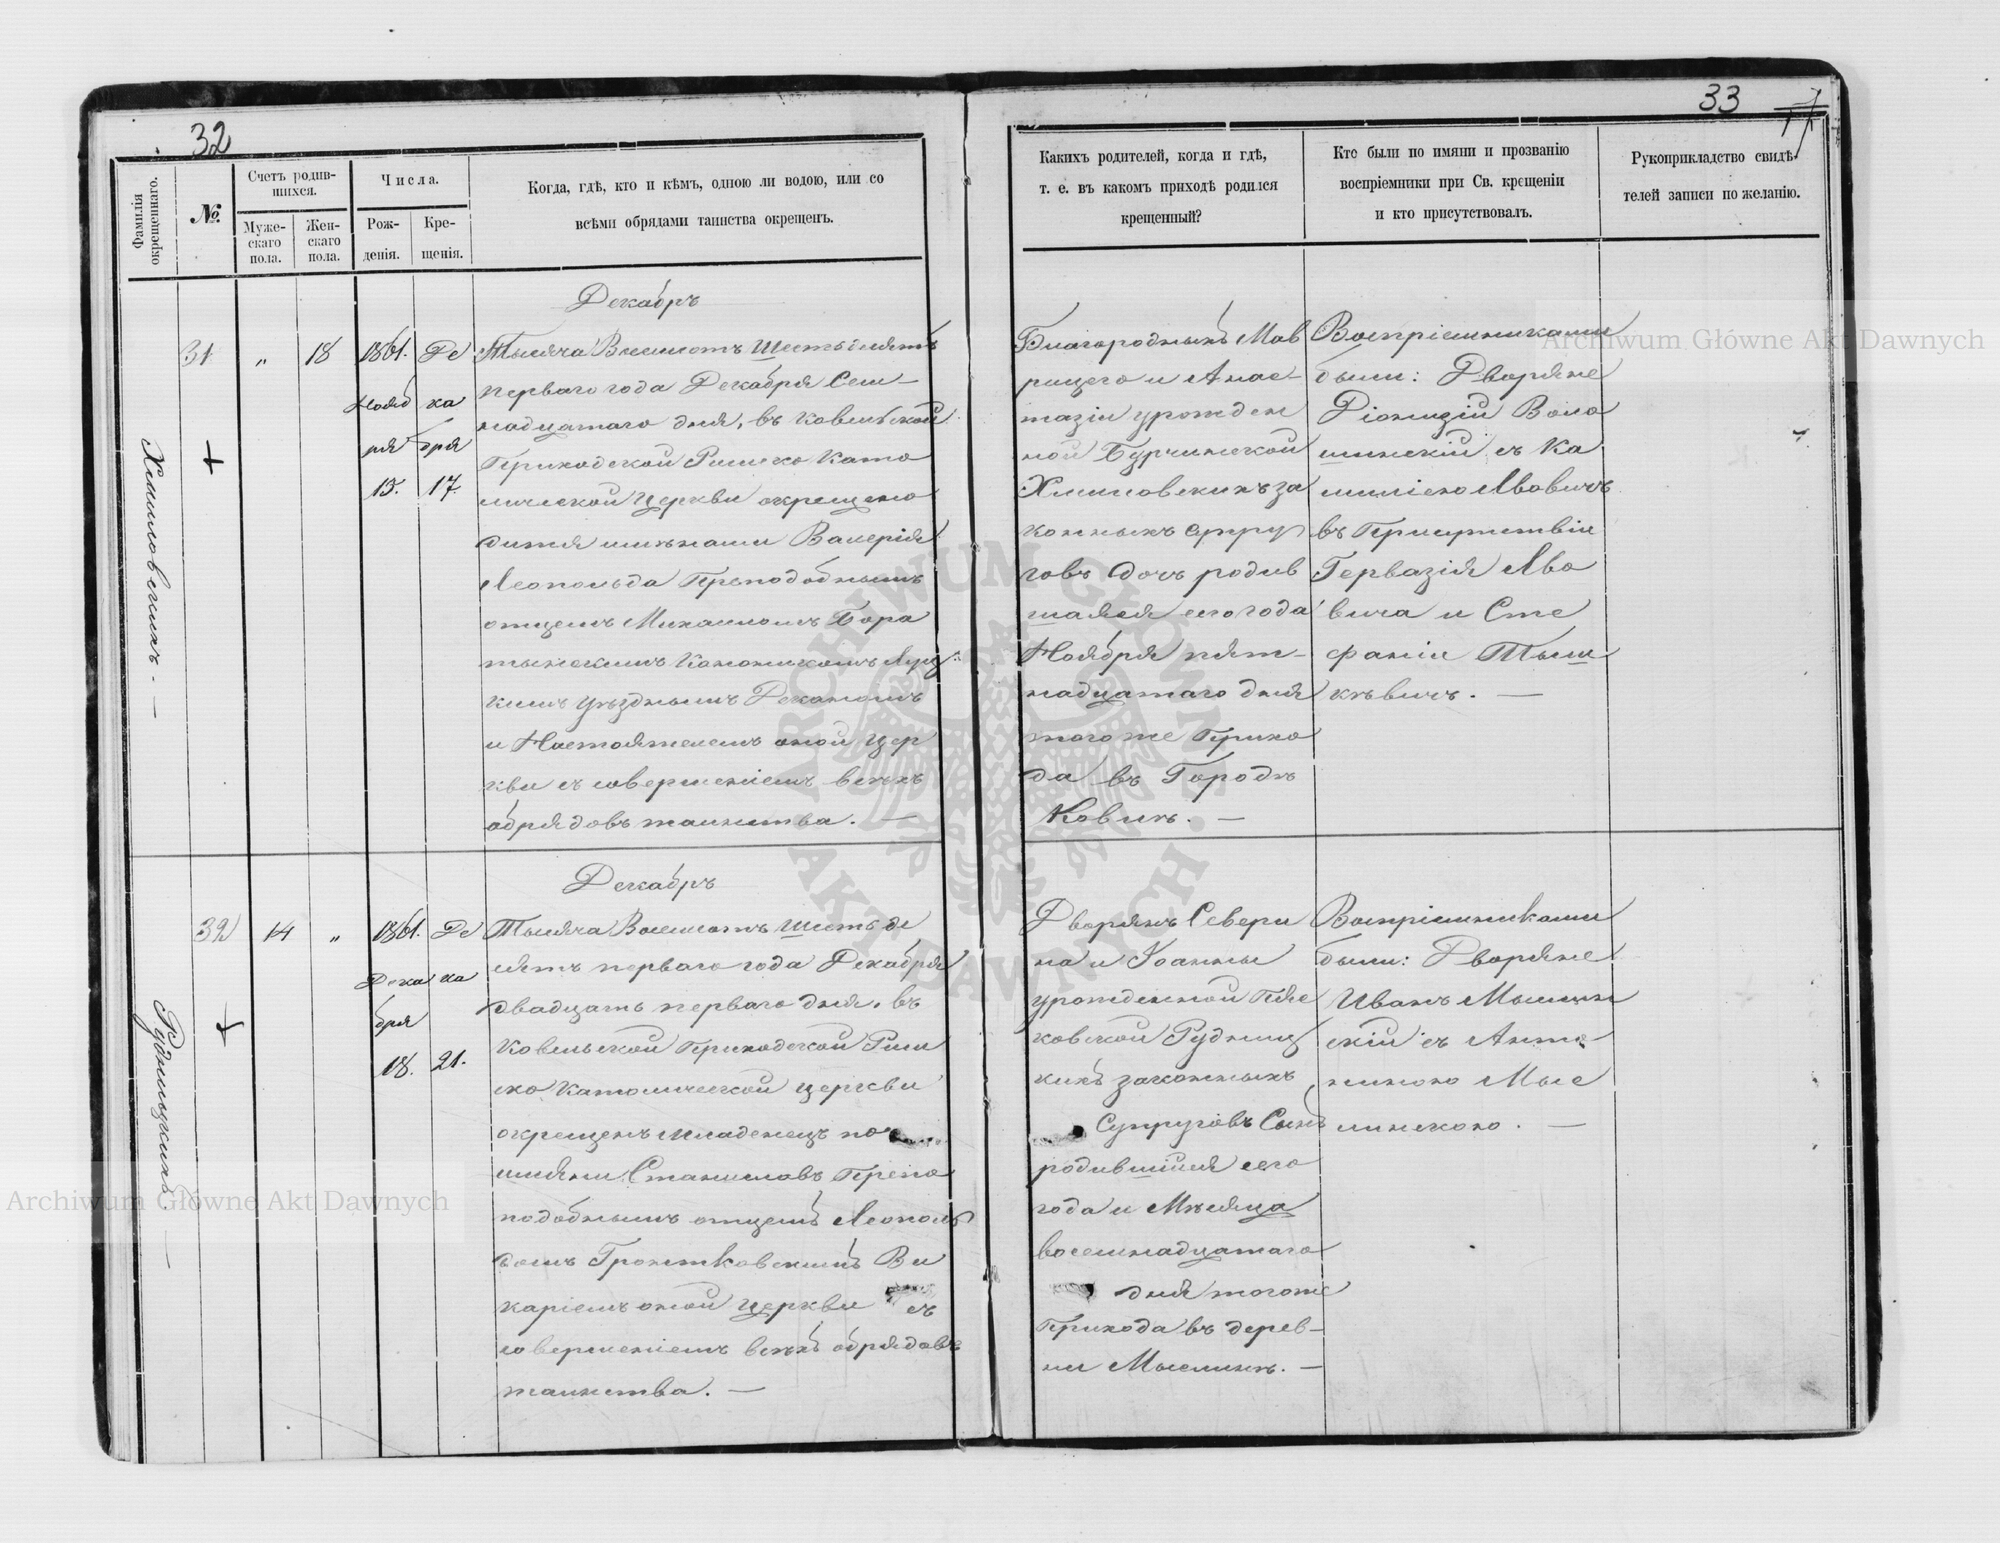 32
Фамилія окрещеннаго.
№.
Счетъ родив-
шихся.
Муже-
скаго
пола.
Жен-
скаго
пола.
Числа.
Рож-
денія.
Кре-
щенія.
Когда, гдѣ, кто и кѣмъ, одною ли водою, или со
всѣми обрядами таинства окрещенъ.
Хемиловскихъ. —
31
„
18
1861.
Нояб
ря
15.
Де
ка
бря
17.
Декабръ
Тысяча Восемсотъ Шестьдесятъ
перваго года Декабря Сем-
надцатаго дня, въ Ковельской
Приходской Римско Като
лической церкви окрещено
дитя имѣнами Валерія
Леопольда Преподобнымъ
отцемъ Михаиломъ Бора
тынскимъ Каноникомъ Луц
кимъ уѣзднымъ Деканомъ
и Настоятелемъ оной цер
кви съ совершеніемъ всѣхъ
обрядовъ таинства. —
Рудницкихъ —
32
14
„
1861.
Дека
бря
18.
Де
ка
21.
Декабръ
Тысяча Восемсотъ Шестьде
сятъ перваго года Декабря
двадцать перваго дня, въ
Ковельской Приходской Рим
ско Католической церкви
окрещенъ Младенецъ по
имяни Станиславъ Препо
подобнымъ отцемъ Леополь
домъ Гронтковскимъ Ви
каріемъ оной церкви съ
совершеніемъ всѣхъ обрядовъ
таинства. —
33
17
Какихъ родителей, когда и гдѣ,
т. е. въ какомъ приходѣ родился
крещенный?
Кто были по имяни и прозванію
воспріемники при Св. крещеніи
и кто присутствовалъ.
Рукоприкладство свидѣ-
телей записи по желанію.
Благородныхъ Мав
рицего и Анас-
тазіи урожден
ной Бурчинской
Хмиловскихъ за
конныхъ супру
говъ дочъ родив
шаяся сего года
Ноября пят-
надцатаго дня
тогоже Прихо
да въ Городѣ
Ковлѣ. —
Воспріемниками
были: Дворяне
Діонизій Воло
шинскій съ Ка
милією Львовичъ
въ Присутствіи
Гервазія Льво
вича и Сте
фаніи Тыш
кѣвичъ. —
Дворянъ Севери
на и Іоанны
урожденной Пяс
ковской Рудниц
кихъ законныхъ
Супруговъ Сынъ
родившійся сего
года и Мѣсяца
восемнадцатаго
дня тогоже
Прихода въ дерев-
ни Мыслинѣ. —
Воспріемниками
были: Дворяне
Иванъ Мыслин
скій съ Анто
ниною Мыс
линскою. —
Archiwum Główne Akt Dawnych
Archiwum Główne Akt Dawnych
ARCHIWUM GŁÓWNE AKT DAWNYCH